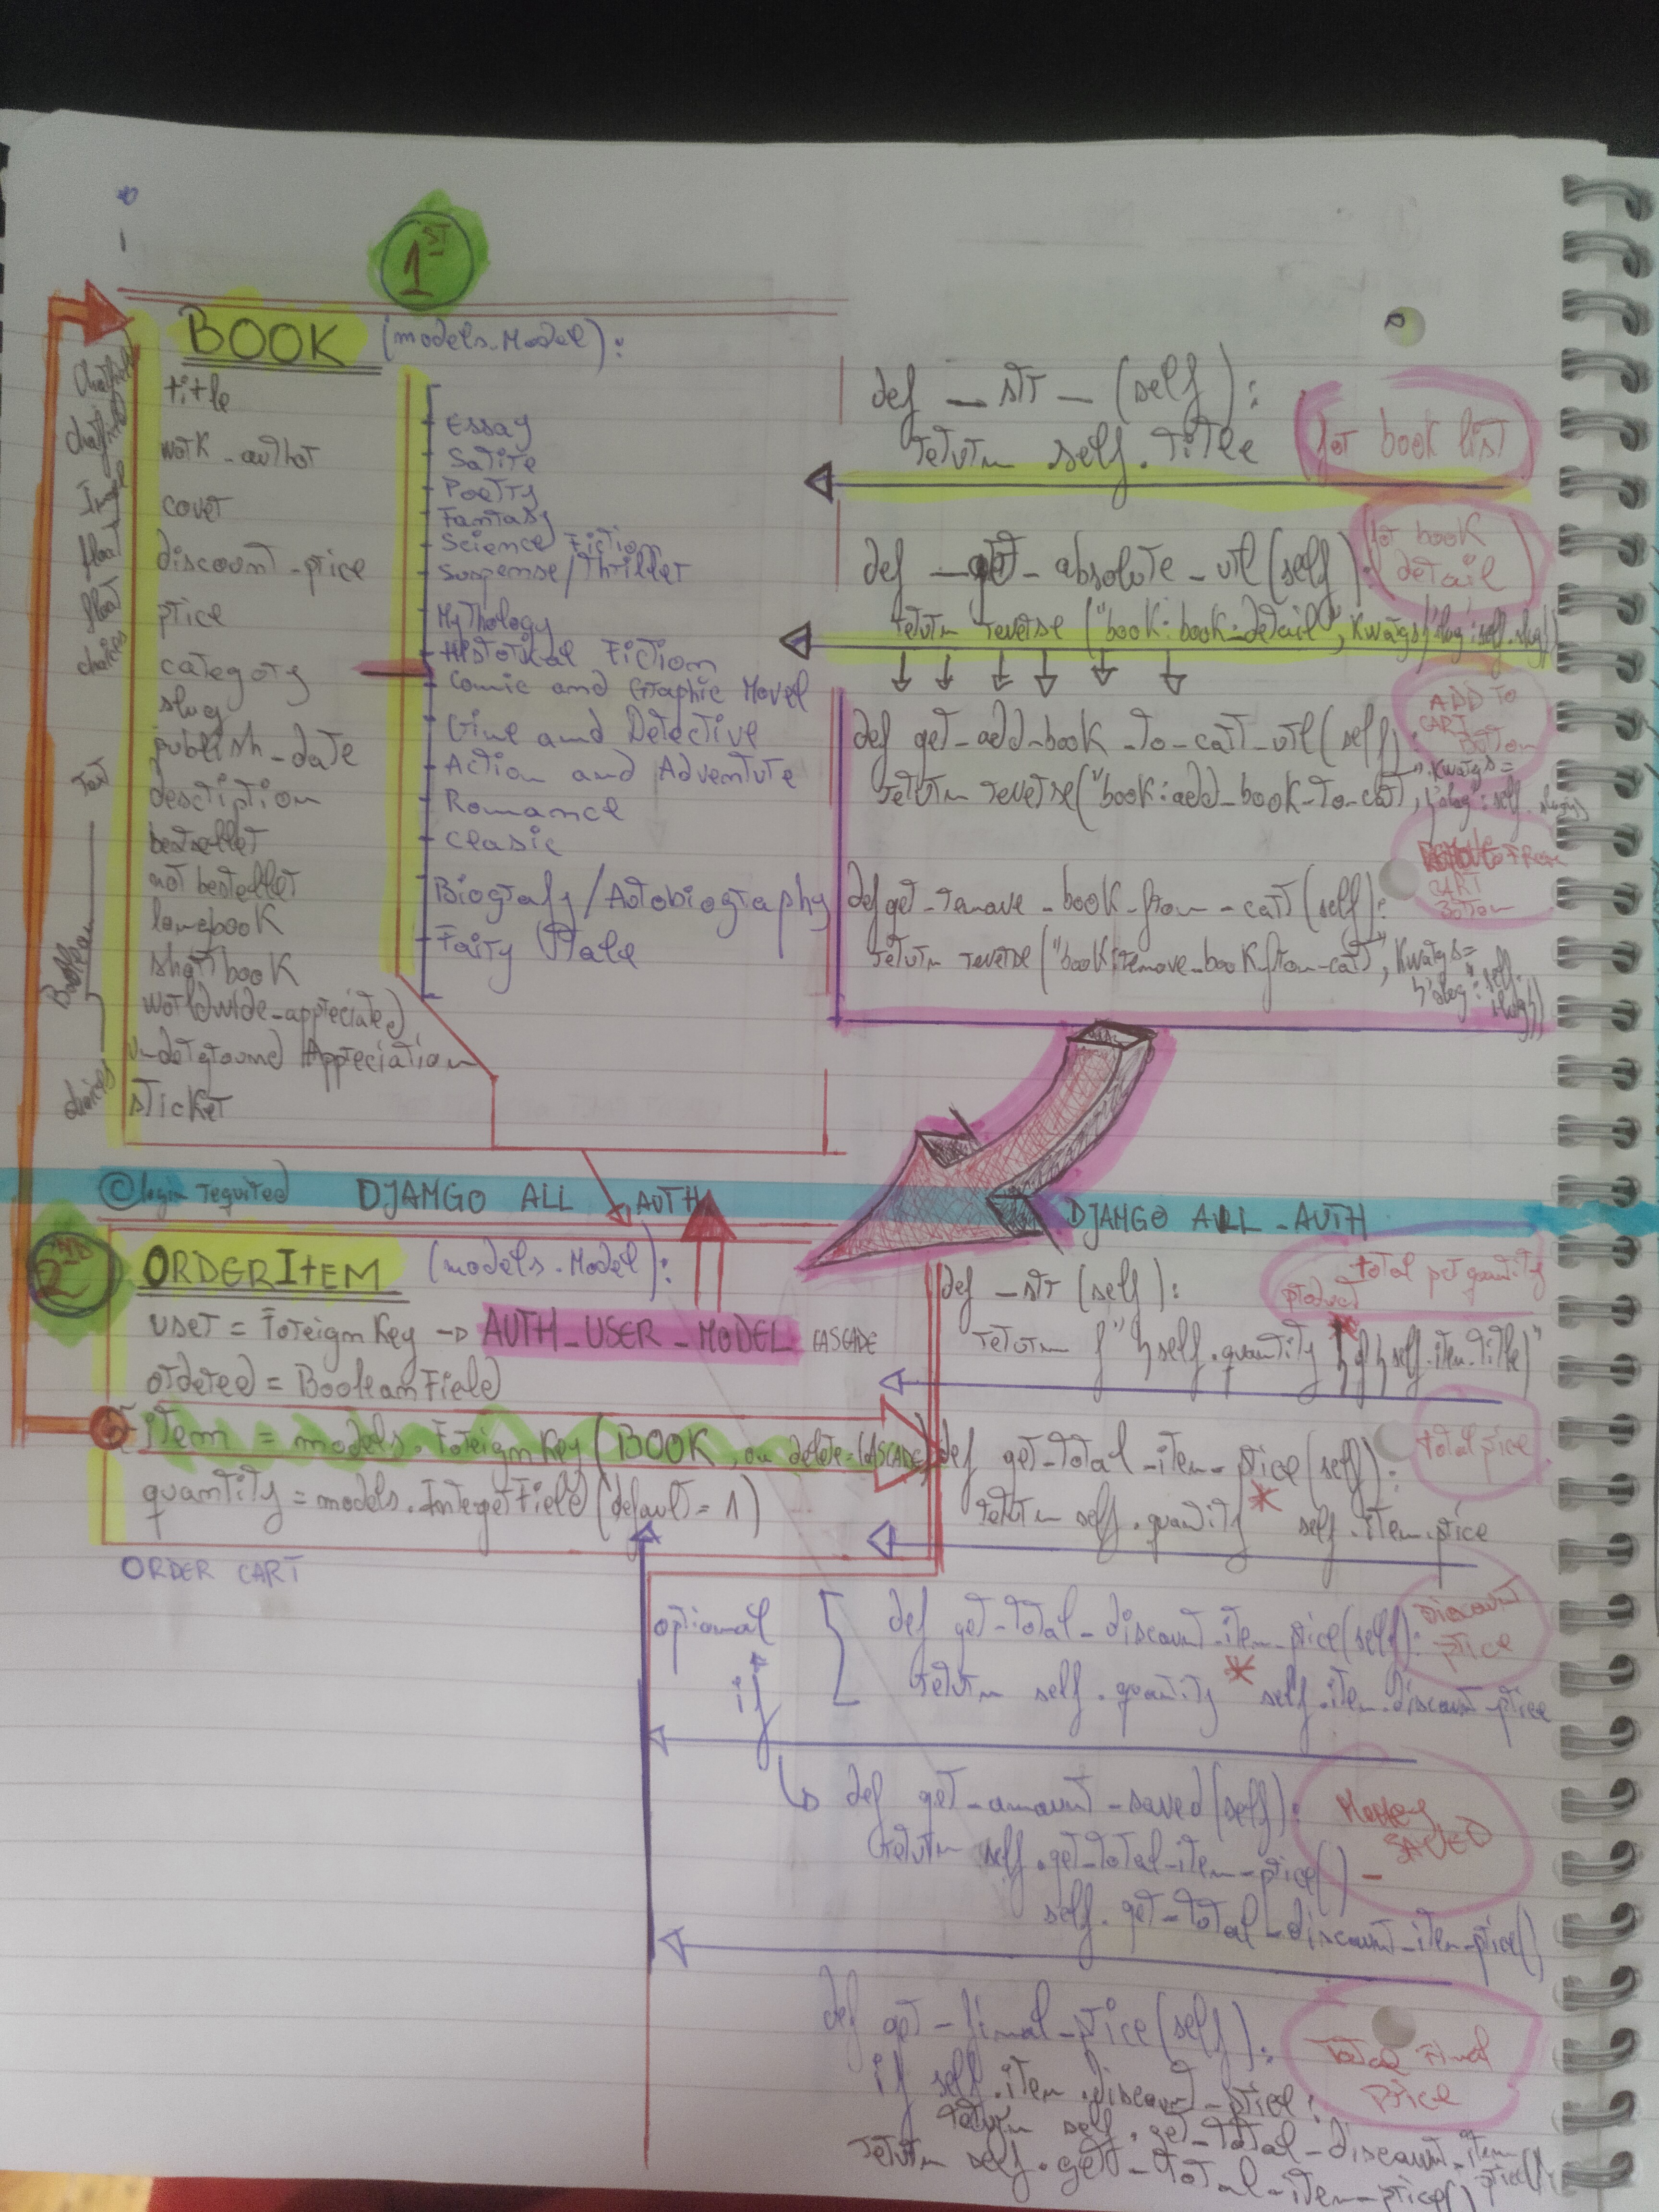 1ST
BOOK (models.Model):
title
work_author
cover
discount_price
price
category
slug
publish_date
description
bestseller
not besteller
longbook
shortbook
worldwide_appreciated
Underground Appreciation
sticker
Image
float
float
choices
Text
Boolean
choices
Essay
Satire
Poetry
Fantasy
Science Fiction
Suspense/Thriller
Mythology
Historical Fiction
Comic and Graphic Novel
Crime and Detective
Action and Adventure
Romance
Clasic
Biografy/Autobiography
Fairy Tale
def __str__(self):
return self.title
for book list
def _get_absolute_url(self):
return reverse("book:book-detail", kwargs{'slug':self.slug})
for book
detail
def get_add_book_to_cart_url(self):
return reverse("book:add_book_to_cart", kwargs=
{'slug':self.slug})
ADD TO
CART
BOTTOM
def get_remove_book_from_cart(self):
return reverse("book:remove_book_from_cart", kwargs=
{'slug":self.
slug})
REMOVE FROM
CART
BOTTOM
@login required DJANGO ALL AUTH
DJANGO ALL_AUTH
2ND
ORDERITEM (models.Model):
user = ForeignKey -> AUTH_USER_MODEL CASCADE
ordered = BooleanField
item = models.ForeignKey(BOOK, on delete=CASCADE)
quantity = models.IntegerField(default=1)
ORDER CART
def _str(self):
return f"{self.quantity} of {self.item.title}"
total per quantity
product
def get_total_item_price(self):
return self.quantity * self.item.price
total price
optional
if
def get_total_discount_item_price(self):
return self.quantity * self.item.discount_price
DISCOUNT
price
def get_amount_saved(self):
return self.get_total_item_price() -
self.get_total_discount_item_price()
MONEY
SAVED
def get_final_price(self):
if self.item.discount_price:
return self.get_total_discount_item_price()
return self.get_total_item_price()
Total Final
Price